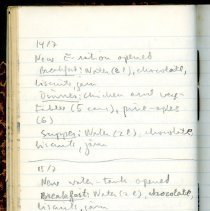 14/7
New F-ration opened
Breakfast: Water (2 l), chocolate,
biscuits, jam
Dinner: Chicken and veg-
tables (5 cans), pine-apples
(6)
Supper: Water (2 l), chocolate
biscuits, jam
15/7
New water-tank opened
Breakfast: Water (2 l), chocolate,
biscuits, jam